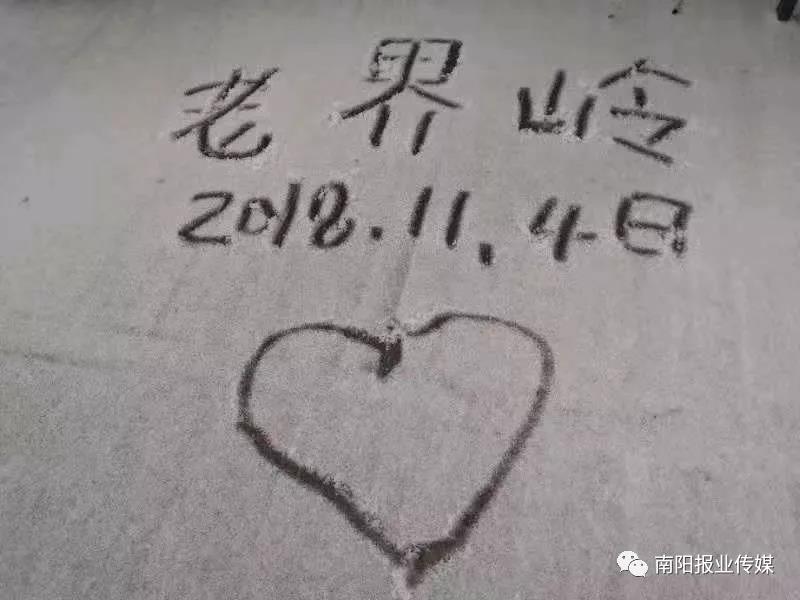 老界岭
2018.11.4日
南阳报业传媒